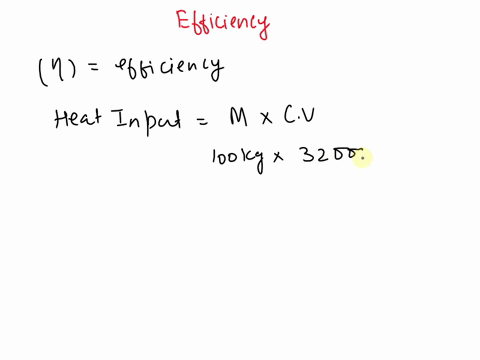 Efficiency
(η) = efficiency
Heat Input = M × C.V
100kg × 3200.